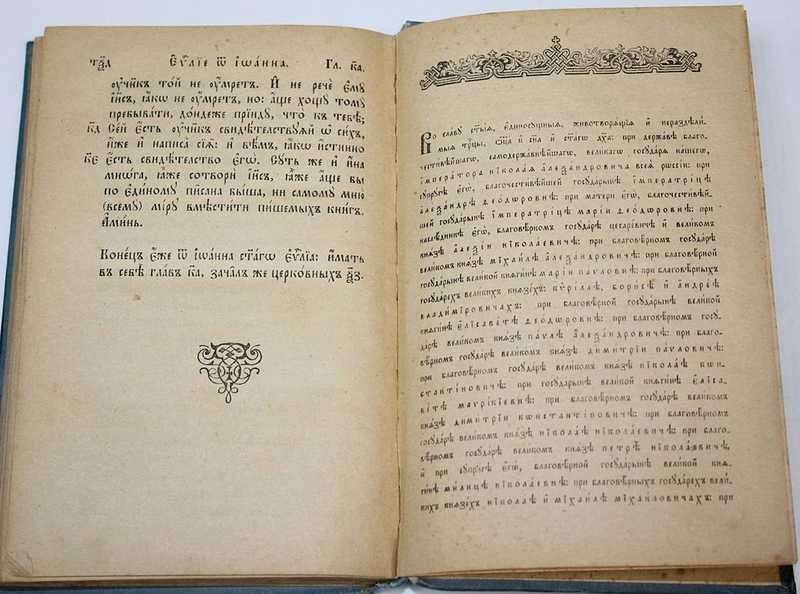 тѯ҃д Є҆ѵⷢ҇лїе ѿ і҆ѡа́нна. Гл. к҃а.
ᲂу҆чн҃къ то́й не ᲂу҆́мретъ. И҆ не речѐ є҆мꙋ̀
і҆и҃съ, ꙗ҆́кѡ не ᲂу҆́мретъ, но: а҆́ще хощꙋ̀ томꙋ̀
пребыва́ти, до́ндеже прїидꙋ̀, что̀ къ тебѣ̀;
к҃д Се́й є҆́сть ᲂу҆чн҃къ свидѣ́тельствꙋѧй ѡ҆ си́хъ,
и҆́же и҆ написа̀ сїѧ̑: и҆ вѣ́мъ, ꙗ҆́кѡ и҆́стинно
к҃е є҆́сть свидѣ́тельство є҆гѡ̀. Сꙋ́ть же и҆ и҆́на
мнѡ́га, ꙗ҆̀же сотворѝ і҆и҃съ, ꙗ҆̀же а҆́ще бы
по є҆ди́номꙋ пи̑сана бы́ша, ни самомꙋ̀ мню̀
(всемꙋ̀) мі́рꙋ вмѣсти́ти пи́шемыхъ кни́гъ.
А҆ми́нь.
Коне́цъ є҆́же ѿ і҆ѡа́нна ст҃а́гѡ є҆ѵⷢ҇лїа: и҆́мать
въ себѣ̀ гла́въ к҃а, зача́лъ же церко́вныхъ ѯ҃з.
Во сла́вꙋ ст҃ы́ѧ, є҆диносꙋ́щныѧ, животворѧ́щїѧ и҆ неразде́ли-
мыѧ трⷪ҇цы, ѻ҆ц҃а̀ и҆ сн҃а и҆ ст҃а́гѡ дх҃а: при держа́вѣ благо-
чести́вѣйшагѡ, самодержа́внѣйшагѡ, вели́кагѡ госꙋдарѧ̀ на́шегѡ
і҆мпера́тора нїкола́ѧ а҆леѯа́ндровича всеѧ̀ рѡссі́и: при
сꙋпрꙋ́гѣ є҆гѡ̀, благочести́вѣйшей госꙋда́рынѣ і҆мператри́цѣ
а҆леѯа́ндрѣ ѳео́дѡровнѣ: при ма́тери є҆гѡ̀, благочести́вѣй-
шей госꙋда́рынѣ і҆мператри́цѣ марі́и ѳео́дѡровнѣ: при
наслѣ́дникѣ є҆гѡ̀, благовѣ́рномъ госꙋда́рѣ цесаре́вичѣ и҆ вели́комъ
кнѧ́зѣ а҆леѯі́и нїкола́евичѣ: при благовѣ́рномъ госꙋда́рѣ
вели́комъ кнѧ́зѣ мїхаи́лѣ а҆леѯа́ндровичѣ: при благовѣ́рной
госꙋда́рынѣ вели́кой кнѧги́нѣ марі́и па́vловнѣ: при благовѣ́рныхъ
госꙋда́рехъ вели́кихъ кнѧзе́хъ: кѷрі́ллѣ, бори́сѣ и҆ а҆ндре́ѣ
влади́мїровичахъ: при благовѣ́рной госꙋда́рынѣ вели́кой
кнѧги́нѣ є҆лїсаве́тѣ ѳео́дѡровнѣ: при благовѣ́рномъ госꙋ-
да́рѣ вели́комъ кнѧ́зѣ па́ѵлѣ а҆леѯа́ндровичѣ: при благо-
вѣ́рномъ госꙋда́рѣ вели́комъ кнѧ́зѣ дими́трїи па́ѵловичѣ:
при благовѣ́рномъ госꙋда́рѣ вели́комъ кнѧ́зѣ нїкола́ѣ кѡн-
стантї́новичѣ: при госꙋда́рынѣ вели́кой кнѧги́нѣ є҆лїса-
ве́тѣ маѵрі́кїевнѣ: при благовѣ́рномъ госꙋда́рѣ вели́комъ
кнѧ́зѣ дими́трїи кѡнстантї́новичѣ: при благовѣ́рномъ
госꙋда́рѣ вели́комъ кнѧ́зѣ нїкола́ѣ нїкола́евичѣ: при благо-
вѣ́рномъ госꙋда́рѣ вели́комъ кнѧ́зѣ петрѣ̀ нїкола́евичѣ,
и҆ при сꙋпрꙋ́гѣ є҆гѡ̀, благовѣ́рной госꙋда́рынѣ вели́кой кнѧ-
ги́нѣ ми́лицѣ нїкола́евнѣ: при благовѣ́рныхъ госꙋда́рехъ вели́-
кихъ кнѧзе́хъ нїкола́ѣ и҆ мїхаи́лѣ мїха́иловичахъ: при